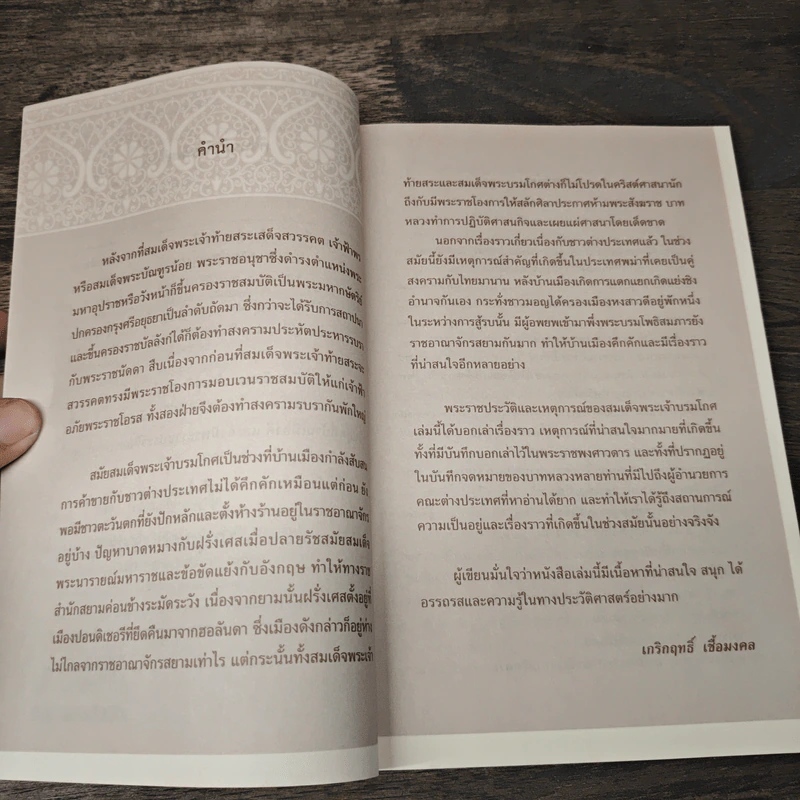 คำนำ
หลังจากที่สมเด็จพระเจ้าท้ายสระเสด็จสวรรคต เจ้าฟ้าพร
หรือสมเด็จพระบัณฑูรน้อย พระราชอนุชาซึ่งดำรงตำแหน่งพระ
มหาอุปราชหรือวังหน้าก็ขึ้นครองราชสมบัติเป็นพระมหากษัตริย์
ปกครองกรุงศรีอยุธยาเป็นลำดับถัดมา ซึ่งกว่าจะได้รับการสถาปนา
และขึ้นครองราชบัลลังก์ได้ก็ต้องทำสงครามประหัตประหารรบรา
กับพระราชนัดดา สืบเนื่องจากก่อนที่สมเด็จพระเจ้าท้ายสระจะ
สวรรคตทรงมีพระราชโองการมอบเวนราชสมบัติให้แก่เจ้าฟ้า
อภัยพระราชโอรส ทั้งสองฝ่ายจึงต้องทำสงครามรบรากันพักใหญ่
สมัยสมเด็จพระเจ้าบรมโกศเป็นช่วงที่บ้านเมืองกำลังสับสน
การค้าขายกับชาวต่างประเทศไม่ได้คึกคักเหมือนแต่ก่อน ยัง
พอมีชาวตะวันตกที่ยังปักหลักและตั้งห้างร้านอยู่ในราชอาณาจักร
อยู่บ้าง ปัญหาบาดหมางกับฝรั่งเศสเมื่อปลายรัชสมัยสมเด็จ
พระนารายณ์มหาราชและข้อขัดแย้งกับอังกฤษ ทำให้ทางราช
สำนักสยามค่อนข้างระมัดระวัง เนื่องจากยามนั้นฝรั่งเศสตั้งอยู่ที่
เมืองปอนดิเชอรีที่ยึดคืนมาจากฮอลันดา ซึ่งเมืองดังกล่าวก็อยู่ห่าง
ไม่ไกลจากราชอาณาจักรสยามเท่าไร แต่กระนั้นทั้งสมเด็จพระเจ้า
ท้ายสระและสมเด็จพระบรมโกศต่างก็ไม่โปรดในคริสต์ศาสนานัก
ถึงกับมีพระราชโองการให้สลักศิลาประกาศห้ามพระสังฆราช บาท
หลวงทำการปฏิบัติศาสนกิจและเผยแผ่ศาสนาโดยเด็ดขาด
นอกจากเรื่องราวเกี่ยวเนื่องกับชาวต่างประเทศแล้ว ในช่วง
สมัยนี้ยังมีเหตุการณ์สำคัญที่เกิดขึ้นในประเทศพม่าที่เคยเป็นคู่
สงครามกับไทยมานาน หลังบ้านเมืองเกิดการแตกแยกเกิดแย่งชิง
อำนาจกันเอง กระทั่งชาวมอญได้ครองเมืองหงสาวดีอยู่พักหนึ่ง
ในระหว่างการสู้รบนั้น มีผู้อพยพเข้ามาพึ่งพระบรมโพธิสมภารยัง
ราชอาณาจักรสยามกันมาก ทำให้บ้านเมืองคึกคักและมีเรื่องราว
ที่น่าสนใจอีกหลายอย่าง
พระราชประวัติและเหตุการณ์ของสมเด็จพระเจ้าบรมโกศ
เล่มนี้ได้บอกเล่าเรื่องราว เหตุการณ์ที่น่าสนใจมากมายที่เกิดขึ้น
ทั้งที่มีบันทึกบอกเล่าไว้ในพระราชพงศาวดาร และทั้งที่ปรากฏอยู่
ในบันทึกจดหมายของบาทหลวงหลายท่านที่มีไปถึงผู้อำนวยการ
คณะต่างประเทศที่หาอ่านได้ยาก และทำให้เราได้รู้ถึงสถานการณ์
ความเป็นอยู่และเรื่องราวที่เกิดขึ้นในช่วงสมัยนั้นอย่างจริงจัง
ผู้เขียนมั่นใจว่าหนังสือเล่มนี้มีเนื้อหาที่น่าสนใจ สนุก ได้
อรรถรสและความรู้ในทางประวัติศาสตร์อย่างมาก
เกริกฤทธิ์ เชื้อมงคล